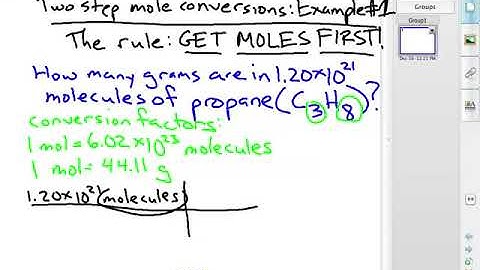 Two step mole conversions: Example #1
The rule: GET MOLES FIRST!
How many grams are in 1.20x10²¹
molecules of propane (C₃H₈)?
conversion factors:
1 mol = 6.02 x10²³ molecules
1 mol = 44.11 g
1.20x10²¹ molecules
Groups
Group1